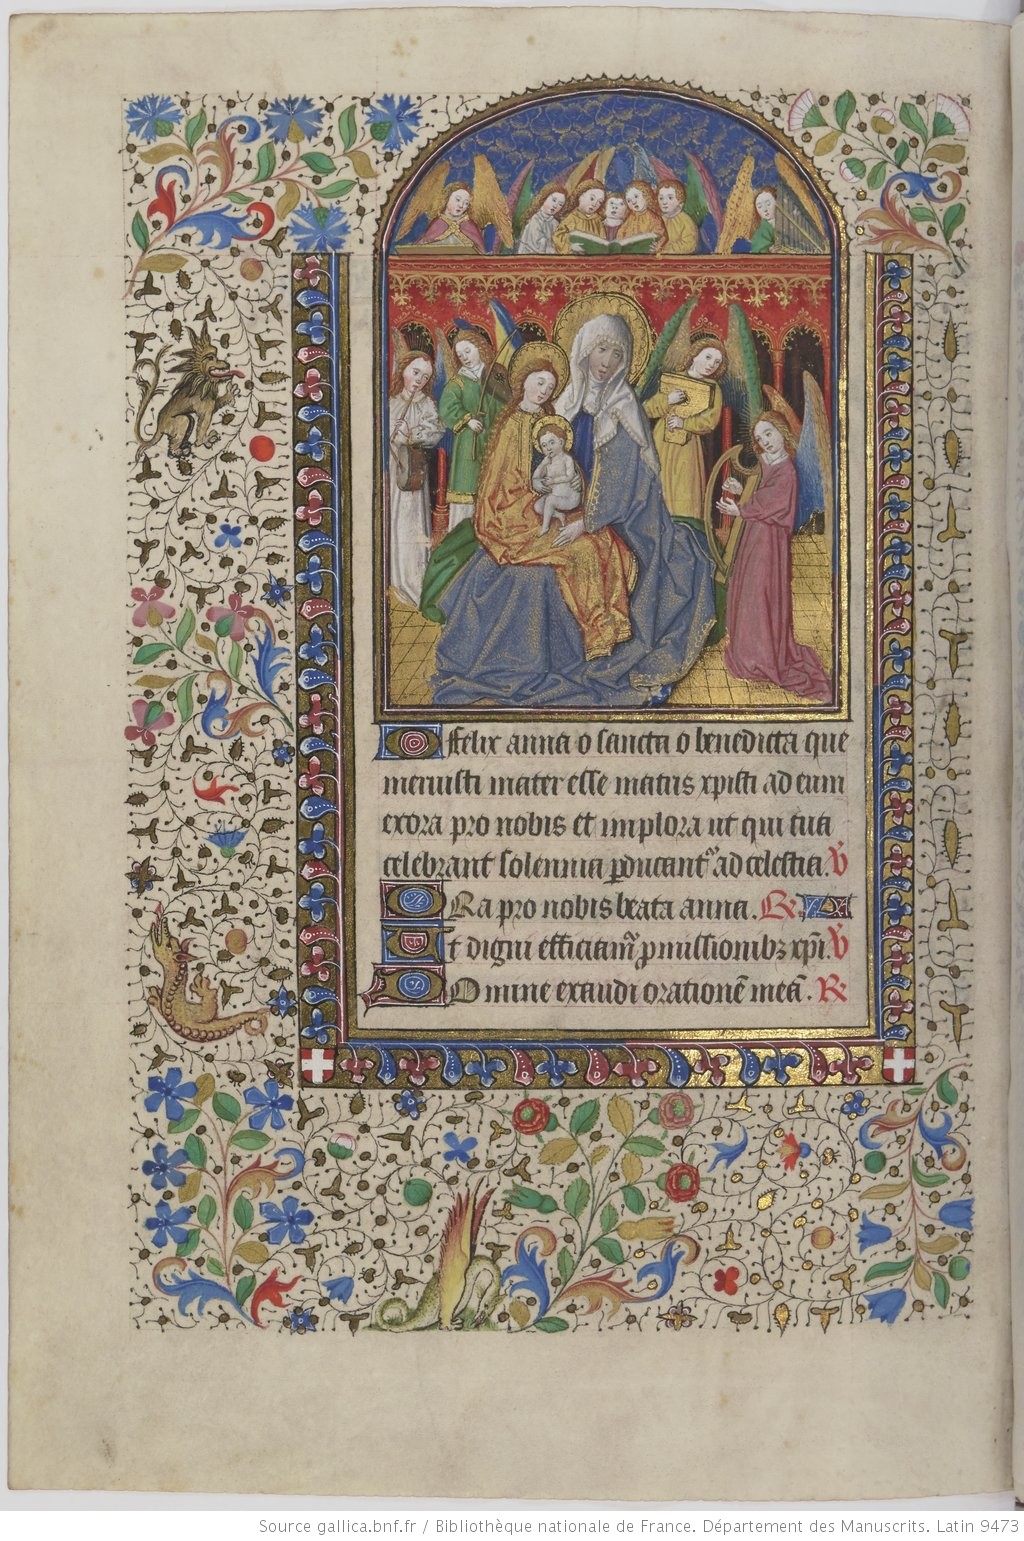 O felix anna o sancta o benedicta que
meruisti mater esse matris xpisti ad eum
exora pro nobis et implora ut qui tua
celebrant solennia pducant᷒ ad celestia. V̇
Ora pro nobis beata anna. R. A
Et digni efficiam᷒ pmissionibz xp̄i. V̇
Domine exaudi orationē meā. R
Source gallica.bnf.fr / Bibliothèque nationale de France. Département des Manuscrits. Latin 9473